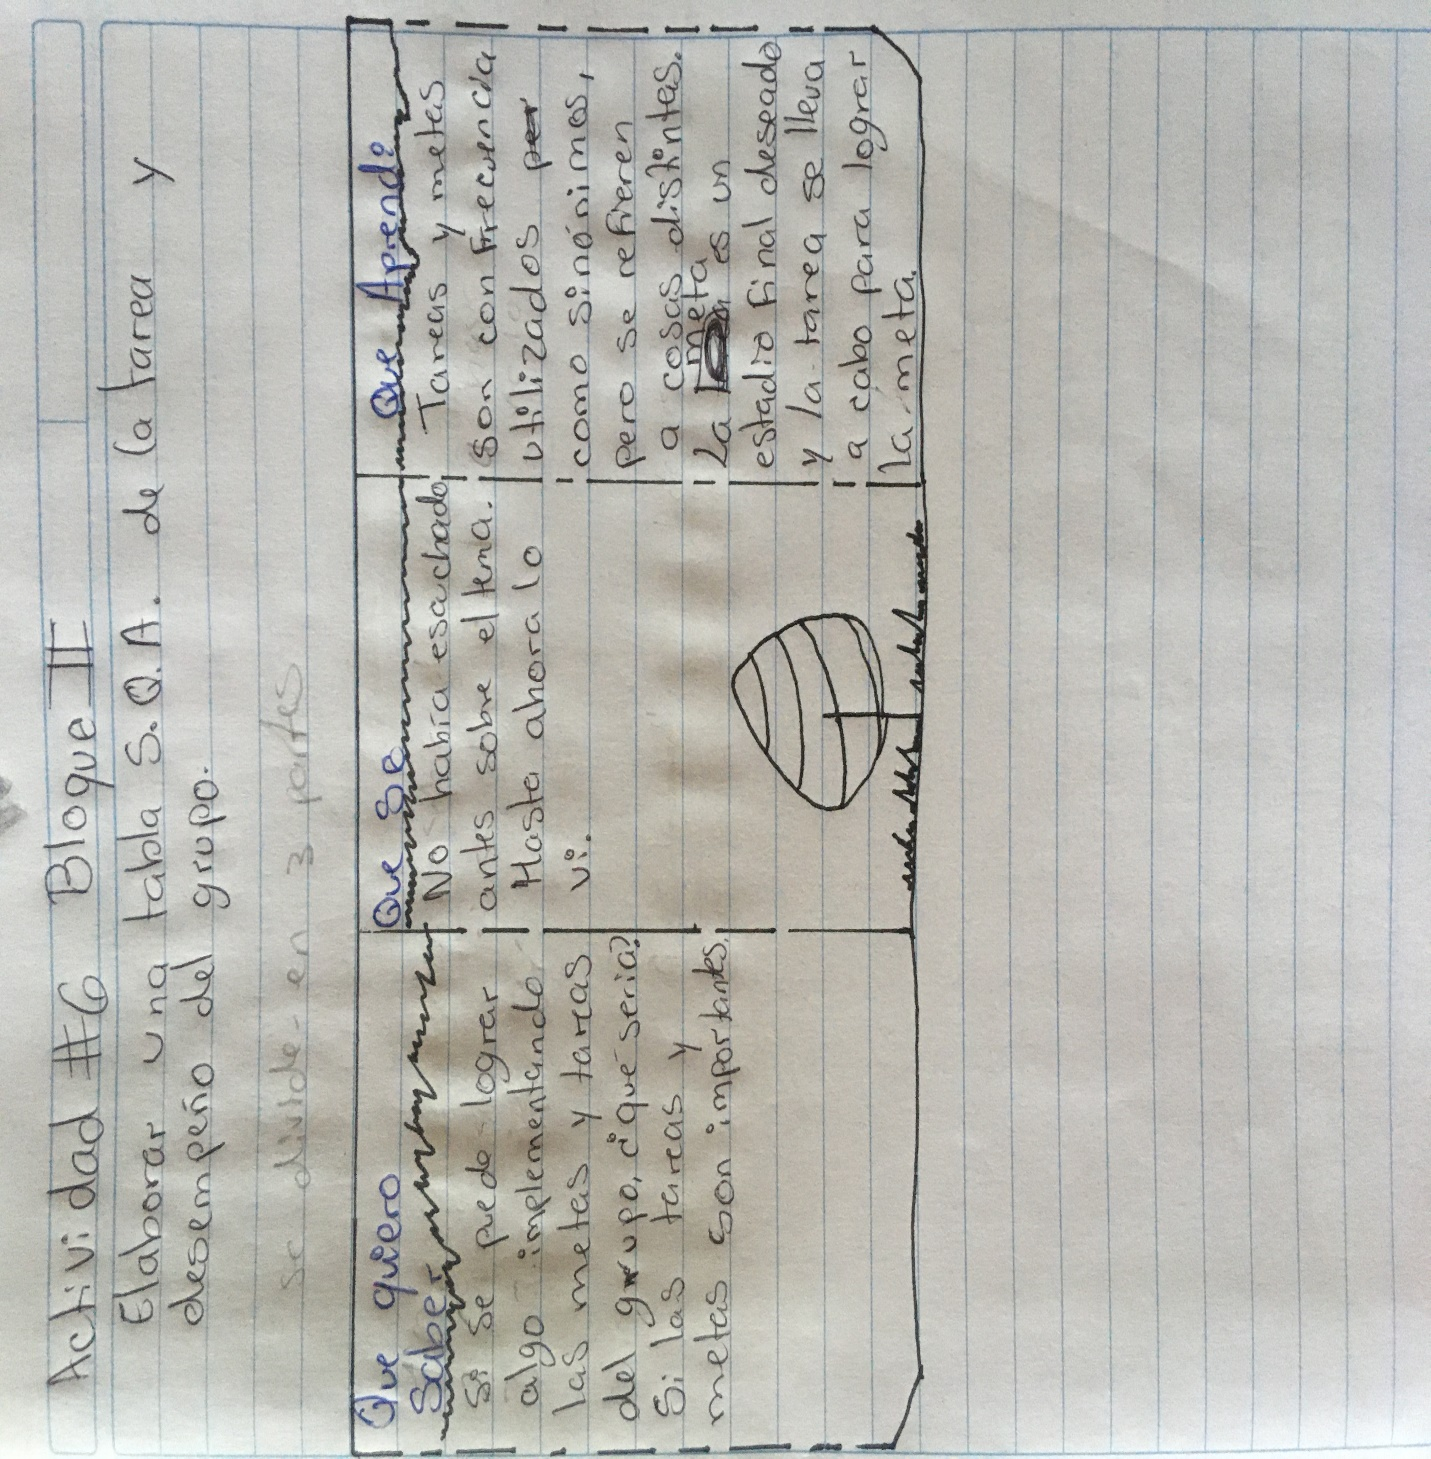 Actividad #6 Bloque II
Elaborar una tabla S.Q.A. de la tarea y
desempeño del grupo.
se divide en 3 partes
Que quiero
Saber
Si se puede lograr
algo implementando
las metas y tareas
del grupo, ¿qué sería?
Si las tareas y
metas son importantes.
Que Se
No había esachado
antes sobre el tema.
Hasta ahora lo
vi.
Que Aprendi
Tareas y metas
son con frecuencia
utilizados por
como sinónimos,
pero se refieren
a cosas distintas.
La meta es un
estadio final deseado
y la tarea se lleva
a cabo para lograr
la meta.